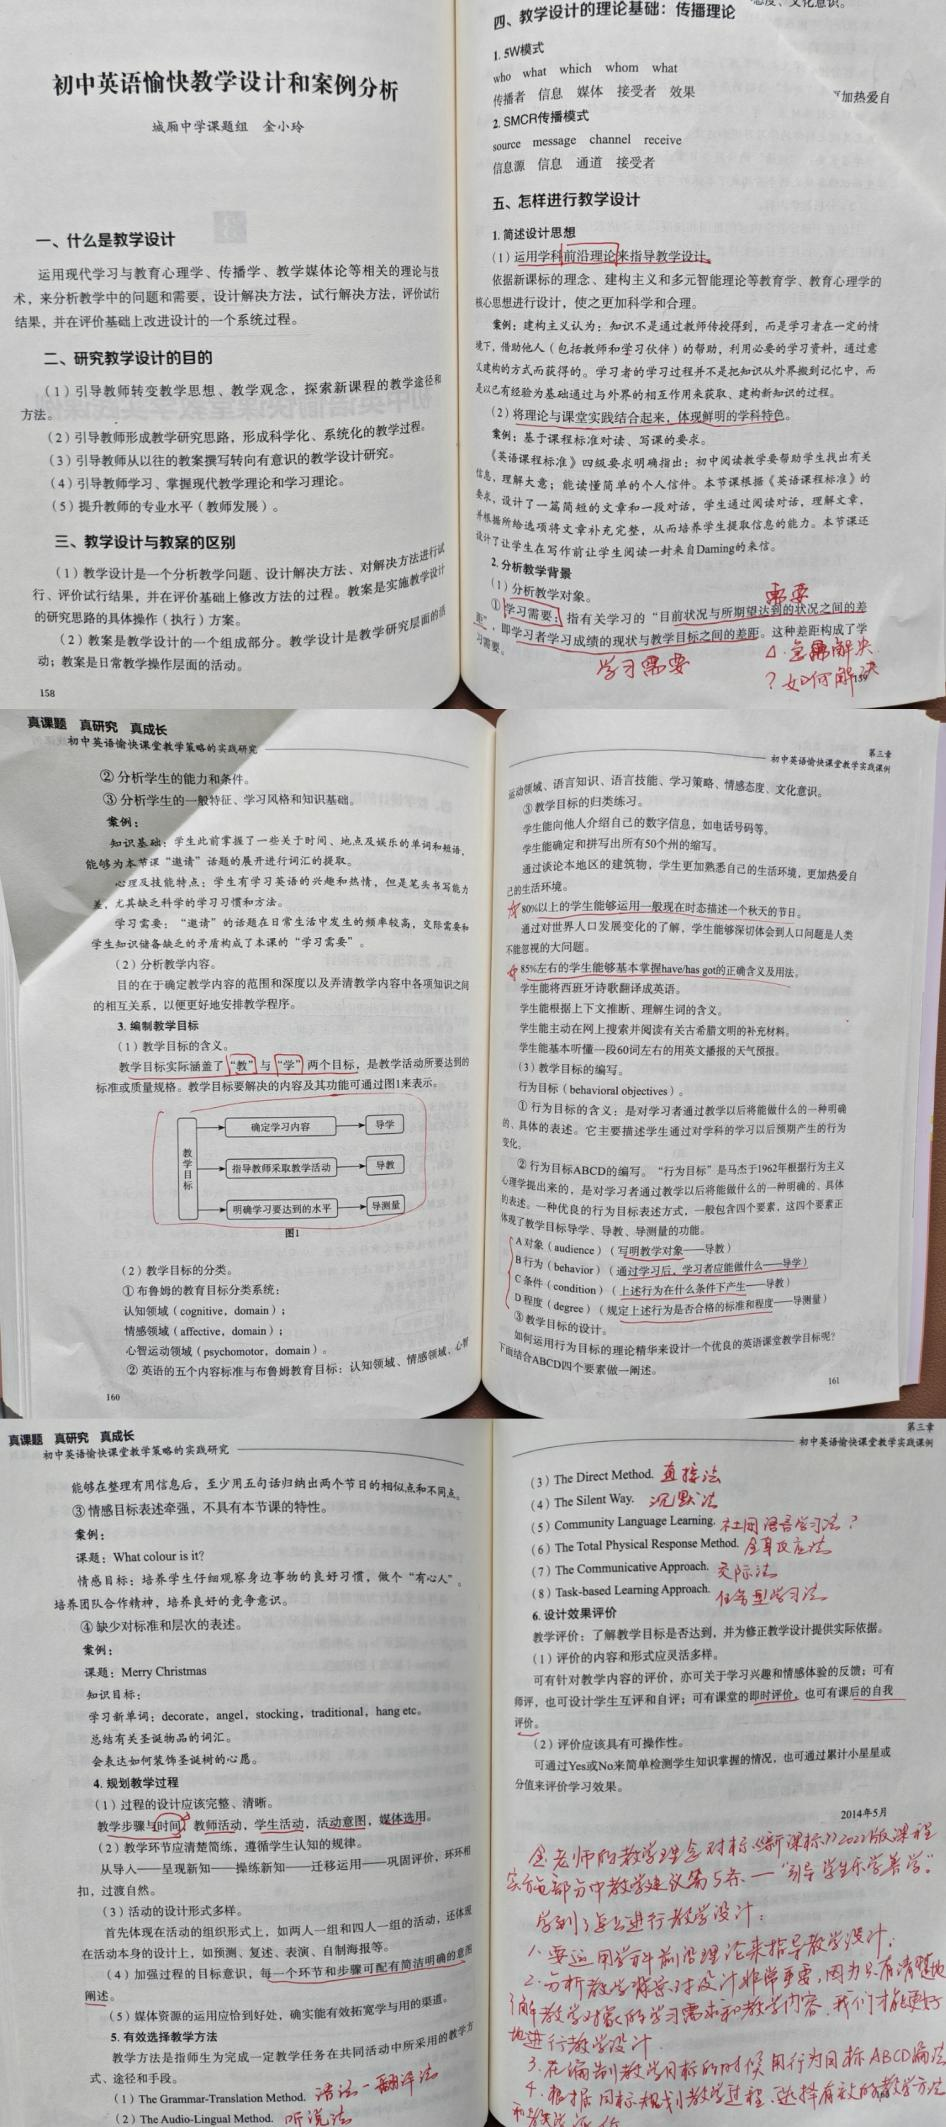 初中英语愉快教学设计和案例分析
城厢中学课题组 金小玲
一、什么是教学设计
运用现代学习与教育心理学、传播学、教学媒体论等相关的理论与技
术，来分析教学中的问题和需要，设计解决方法，试行解决方法，评价试行
结果，并在评价基础上改进设计的一个系统过程。
二、研究教学设计的目的
（1）引导教师转变教学思想、教学观念，探索新课程的教学途径和
方法。
（2）引导教师形成教学研究思路，形成科学化、系统化的教学过程。
（3）引导教师从以往的教案撰写转向有意识的教学设计研究。
（4）引导教师学习、掌握现代教学理论和学习理论。
（5）提升教师的专业水平（教师发展）。
三、教学设计与教案的区别
（1）教学设计是一个分析教学问题、设计解决方法、对解决方法进行试
行、评价试行结果，并在评价基础上修改方法的过程。教案是实施教学设计
的研究思路的具体操作（执行）方案。
（2）教案是教学设计的一个组成部分。教学设计是教学研究层面的活
动；教案是日常教学操作层面的活动。
158
态度、文化意识。
四、教学设计的理论基础：传播理论
1. 5W模式
who what which whom what
传播者 信息 媒体 接受者 效果
更加热爱自
2. SMCR传播模式
source message channel receive
信息源 信息 通道 接受者
五、怎样进行教学设计
1. 简述设计思想
（1）运用学科前沿理论来指导教学设计。
依据新课标的理念、建构主义和多元智能理论等教育学、教育心理学的
核心思想进行设计，使之更加科学和合理。
案例：建构主义认为：知识不是通过教师传授得到，而是学习者在一定的情
境下，借助他人（包括教师和学习伙伴）的帮助，利用必要的学习资料，通过意
义建构的方式而获得的。学习者的学习过程并不是把知识从外界搬到记忆中，而
是以已有经验为基础通过与外界的相互作用来获取、建构新知识的过程。
（2）将理论与课堂实践结合起来，体现鲜明的学科特色。
案例：基于课程标准对读、写课的要求。
《英语课程标准》四级要求明确指出：初中阅读教学要帮助学生找出有关
信息，理解大意；能读懂简单的个人信件。本节课根据《英语课程标准》的
要求，设计了一篇简短的文章和一段对话，学生通过阅读对话，理解文章，
并根据所给选项将文章补充完整，从而培养学生提取信息的能力。本节课还
设计了让学生在写作前让学生阅读一封来自Daming的来信。
2. 分析教学背景
（1）分析教学对象。
需要
① 学习需要：指有关学习的“目前状况与所期望达到的状况之间的差
距”，即学习者学习成绩的现状与教学目标之间的差距。这种差距构成了学
习需要。
学习需要
急需解决
？如何解决
159
真课题 真研究 真成长
初中英语愉快课堂教学策略的实践研究
② 分析学生的能力和条件。
③ 分析学生的一般特征、学习风格和知识基础。
案例：
知识基础：学生此前掌握了一些关于时间、地点及娱乐的单词和短语，
能够为本节课“邀请”话题的展开进行词汇的提取。
心理及技能特点：学生有学习英语的兴趣和热情，但是笔头书写能力
差，尤其缺乏科学的学习习惯和方法。
学习需要：“邀请”的话题在日常生活中发生的频率较高，交际需要和
学生知识储备缺乏的矛盾构成了本课的“学习需要”。
（2）分析教学内容。
目的在于确定教学内容的范围和深度以及弄清教学内容中各项知识之间
的相互关系，以便更好地安排教学程序。
3. 编制教学目标
（1）教学目标的含义。
教学目标实际涵盖了“教”与“学”两个目标，是教学活动所要达到的
标准或质量规格。教学目标要解决的内容及其功能可通过图1来表示。
教学目标
确定学习内容 导学
指导教师采取教学活动 导教
明确学习要达到的水平 导测量
图1
（2）教学目标的分类。
① 布鲁姆的教育目标分类系统：
认知领域（cognitive，domain）；
情感领域（affective，domain）；
心智运动领域（psychomotor，domain）。
② 英语的五个内容标准与布鲁姆教育目标：认知领域、情感领域、心智
160
第三章
初中英语愉快课堂教学实践课例
运动领域、语言知识、语言技能、学习策略、情感态度、文化意识。
③ 教学目标的归类练习。
学生能向他人介绍自己的数字信息，如电话号码等。
学生能确定和拼写出所有50个州的缩写。
通过谈论本地区的建筑物，学生更加熟悉自己的生活环境，更加热爱自
己的生活环境。
80%以上的学生能够运用一般现在时态描述一个秋天的节日。
通过对世界人口发展变化的了解，学生能够深切体会到人口问题是人类
不能忽视的大问题。
85%左右的学生能够基本掌握have/has got的正确含义及用法。
学生能将西班牙诗歌翻译成英语。
学生能根据上下文推断、理解生词的含义。
学生能主动在网上搜索并阅读有关古希腊文明的补充材料。
学生能基本听懂一段60词左右的用英文播报的天气预报。
（3）教学目标的编写。
行为目标（behavioral objectives）。
① 行为目标的含义：是对学习者通过教学以后将能做什么的一种明确
的、具体的表述。它主要描述学生通过对学科的学习以后预期产生的行为
变化。
② 行为目标ABCD的编写。“行为目标”是马杰于1962年根据行为主义
心理学提出来的，是对学习者通过教学以后将能做什么的一种明确的、具体
的表述。一种优良的行为目标表述方式，一般包含四个要素，这四个要素正
体现了教学目标导学、导教、导测量的功能。
A 对象（audience）（写明教学对象——导教）
B 行为（behavior）（通过学习后，学习者应能做什么——导学）
C 条件（condition）（上述行为在什么条件下产生——导教）
D 程度（degree）（规定上述行为是否合格的标准和程度——导测量）
③ 教学目标的设计。
如何运用行为目标的理论精华来设计一个优良的英语课堂教学目标呢？
下面结合ABCD四个要素做一阐述。
161
真课题 真研究 真成长
初中英语愉快课堂教学策略的实践研究
能够在整理有用信息后，至少用五句话归纳出两个节日的相似点和不同点。
③ 情感目标表述牵强，不具有本节课的特性。
案例：
课题：What colour is it?
情感目标：培养学生仔细观察身边事物的良好习惯，做个“有心人”。
培养团队合作精神，培养良好的竞争意识。
④ 缺少对标准和层次的表述。
案例：
课题：Merry Christmas
知识目标：
学习新单词：decorate，angel，stocking，traditional，hang etc。
总结有关圣诞物品的词汇。
会表达如何装饰圣诞树的心愿。
4. 规划教学过程
（1）过程的设计应该完整、清晰。
教学步骤与时间，教师活动，学生活动，活动意图，媒体选用。
（2）教学环节应清楚简练，遵循学生认知的规律。
从导入——呈现新知——操练新知——迁移运用——巩固评价，环环相
扣，过渡自然。
（3）活动的设计形式多样。
首先体现在活动的组织形式上，如两人一组和四人一组的活动，还体现
在活动本身的设计上，如预测、复述、表演、自制海报等。
（4）加强过程的目标意识，每一个环节和步骤可配有简洁明确的意图
阐述。
（5）媒体资源的运用应恰到好处，确实能有效拓宽学与用的渠道。
5. 有效选择教学方法
教学方法是指师生为完成一定教学任务在共同活动中所采用的教学方
式、途径和手段。
（1）The Grammar-Translation Method. 语法-翻译法
（2）The Audio-Lingual Method. 听说法
第三章
初中英语愉快课堂教学实践课例
（3）The Direct Method. 直接法
（4）The Silent Way. 沉默法
（5）Community Language Learning. 社团语言学习法？
（6）The Total Physical Response Method. 全身反应法
（7）The Communicative Approach. 交际法
（8）Task-based Learning Approach. 任务型学习法
6. 设计效果评价
教学评价：了解教学目标是否达到，并为修正教学设计提供实际依据。
（1）评价的内容和形式应灵活多样。
可有针对教学内容的评价，亦可关于学习兴趣和情感体验的反馈；可有
师评，也可设计学生互评和自评；可有课堂的即时评价，也可有课后的自我
评价。
（2）评价应该具有可操作性。
可通过Yes或No来简单检测学生知识掌握的情况，也可通过累计小星星或
分值来评价学习效果。
2014年5月
金老师的教学理念对标《新课标》2022版课程
实施部分中教学建议第5条—“引导学生乐学善学”。
学到了怎么进行教学设计：
1. 要运用学科前沿理论来指导教学设计。
2. 分析教学背景对设计非常重要，因为只有清楚地
了解教学对象的学习需求和教学内容，我们才能更好
地进行教学设计
3. 在编制教学目标的时候用行为目标ABCD编法
4. 根据目标规划教学过程、选择有效的教学方法